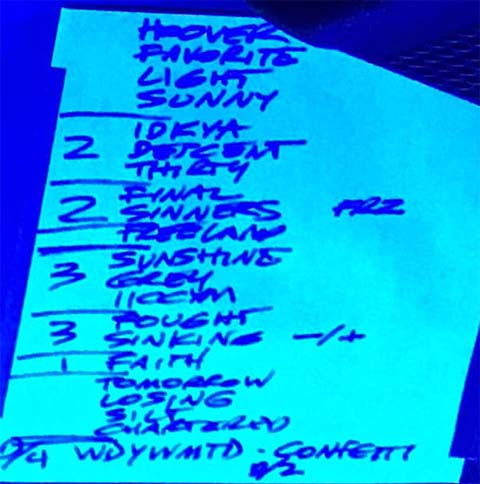 HOOVER
FAVORITE
LIGHT
SUNNY
IDKYA
2 DETCENT
THIRTY
FINAL
2 SINNERS FRZ
FREELAND
SUNSHINE
3 GREY
110CXM
FOUGHT
3 SINKING -/+
1 FAITH
TOMORROW
LOSING
SILT
CHARTERED
D/4 WDYWMTD - CONFETTI